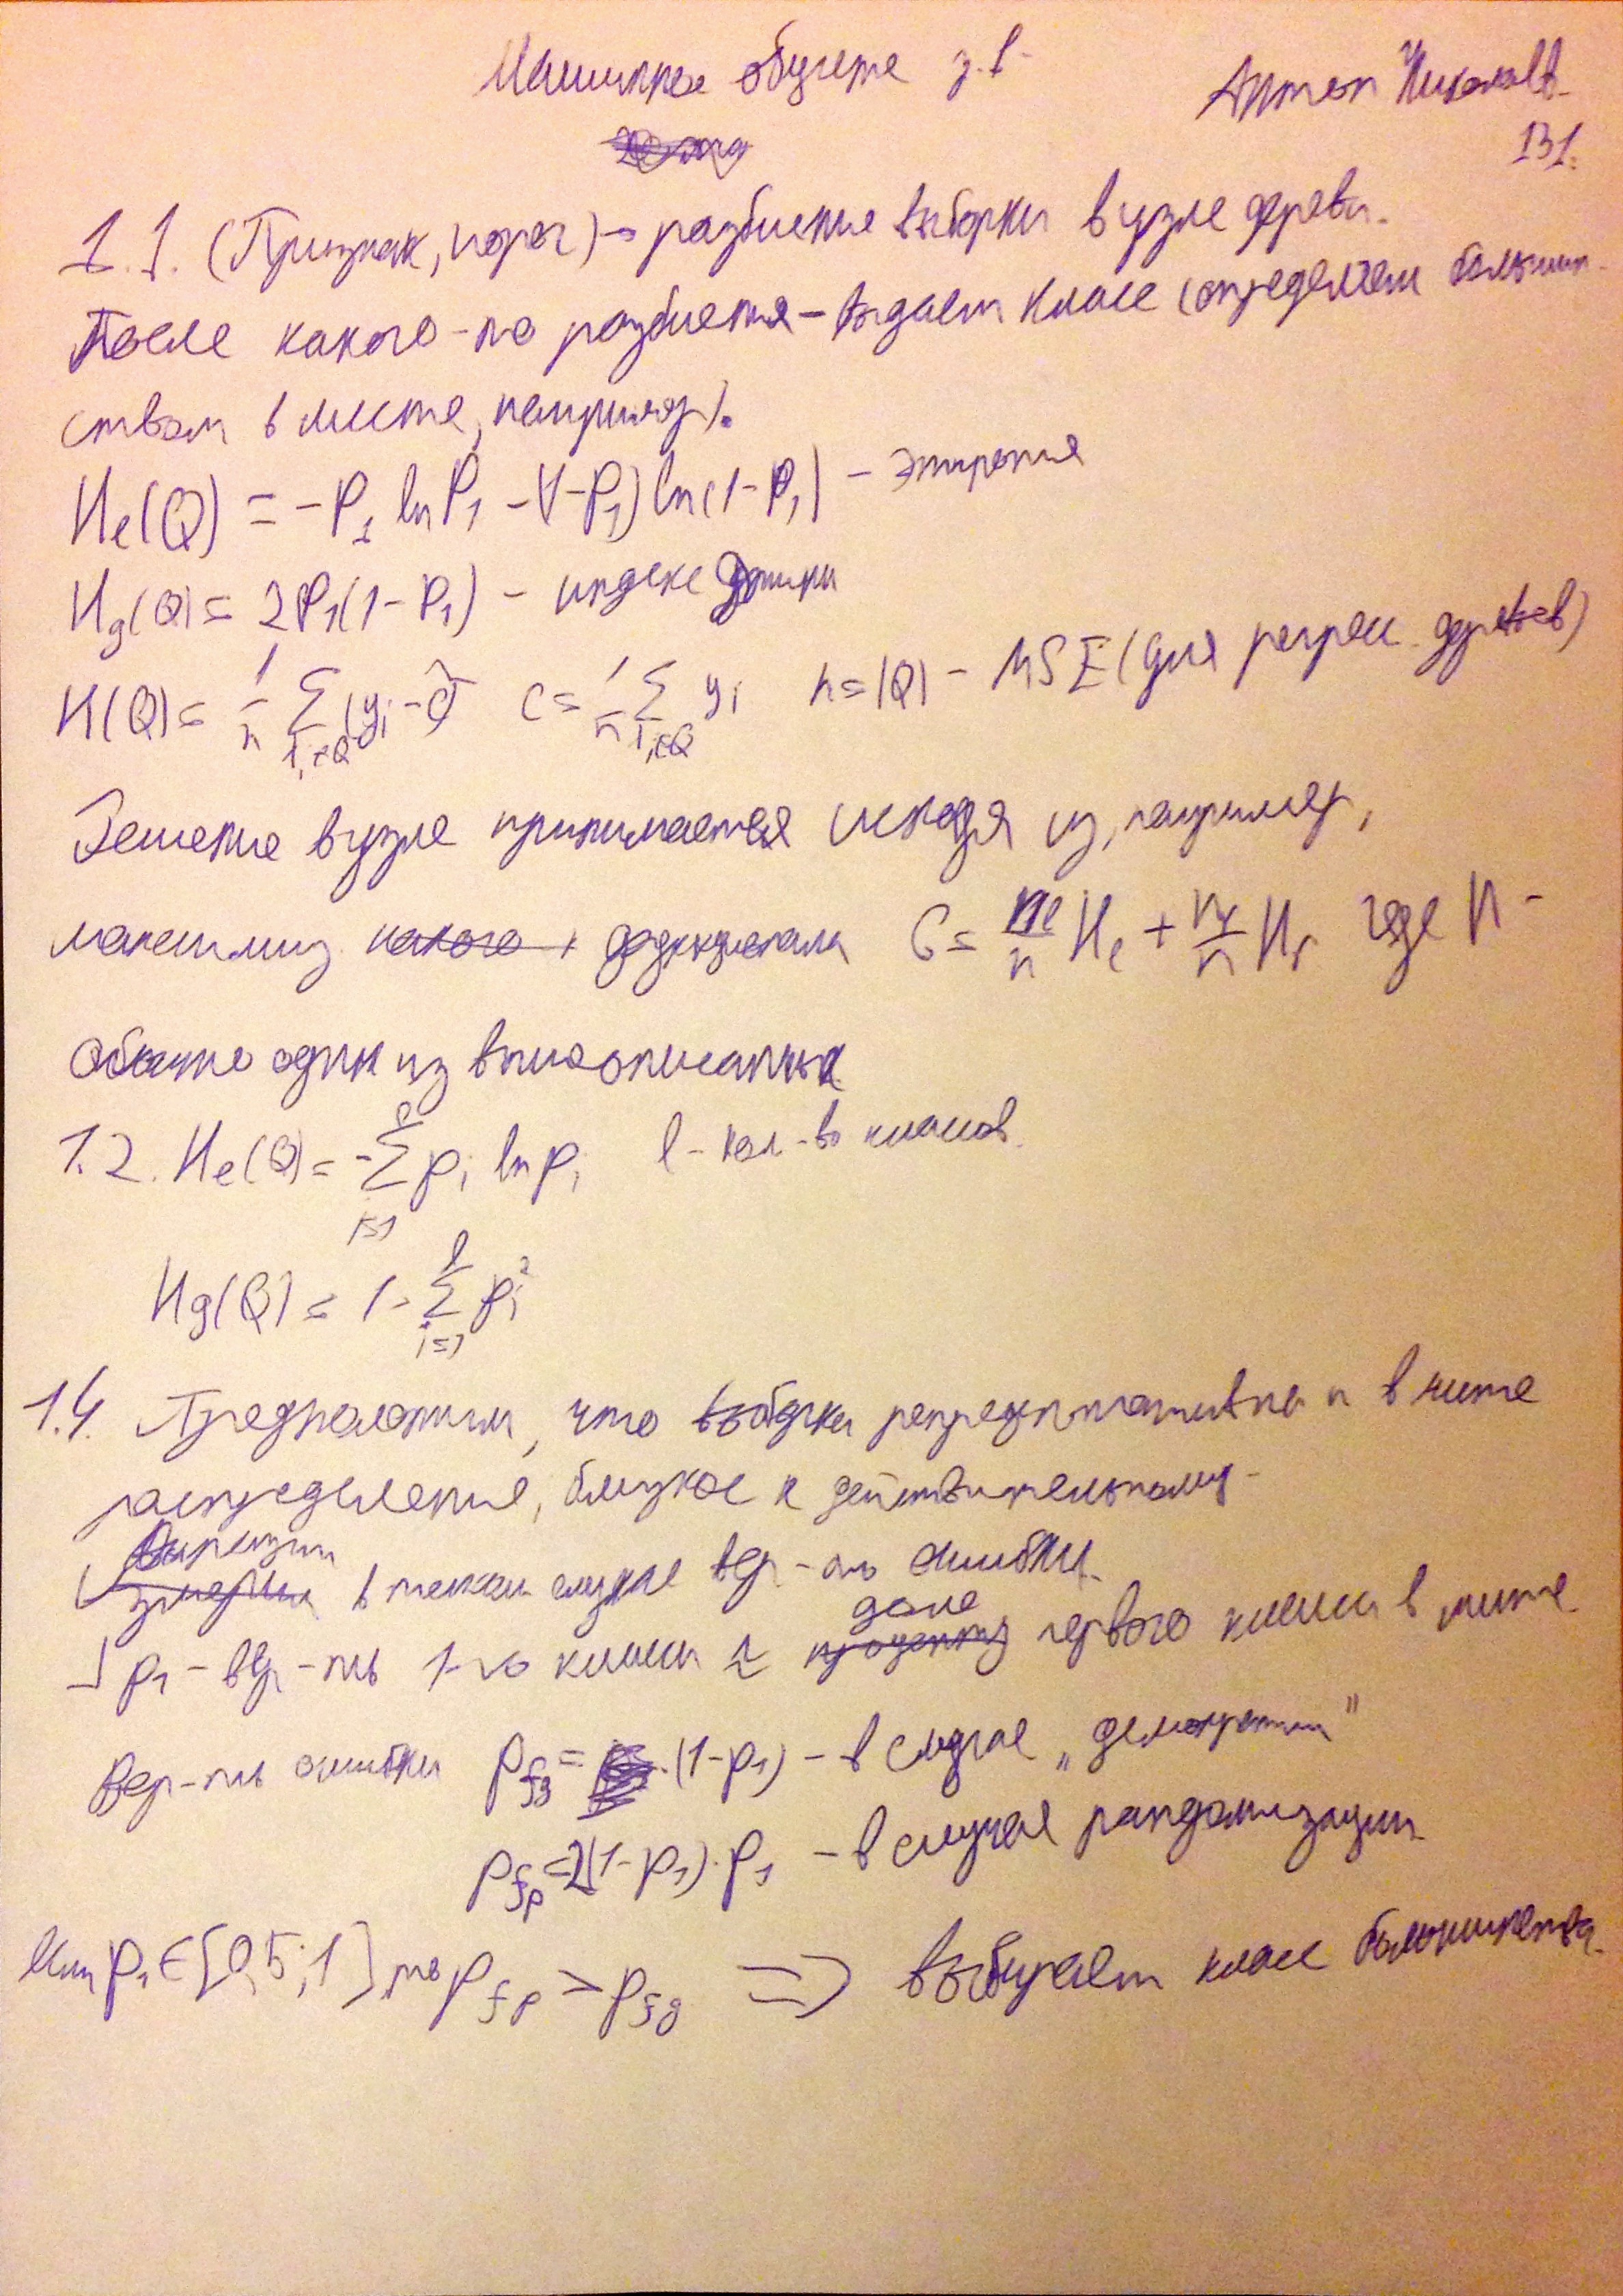 Машинное обучение з.1.
Антон
131.
1.1. (Признак, порог) → разбиение выборки в узле дерева.
После какого-то разбиения – выдаем класс (определяем большин-
ством в листе, например).
He(Q) = -P₁ ln P₁ - (1-P₁) ln(1-P₁) – энтропия
Hg(Q) = 2P₁(1-P₁) – индекс Джини
H(Q) = 1/n Σ_{i∈Q} (yᵢ - c)² c = 1/n Σ_{i∈Q} yᵢ n = |Q| – MSE (для регресс. деревьев)
Решение в узле принимается исходя из, например,
максимиз. функционала G = nₑ/n Hₑ + nᵣ/n Hᵣ где H –
обычно один из вышеописанных
1.2. He(Q) = -Σ_{i=1}^{l} pᵢ ln pᵢ l – кол-во классов.
Hg(Q) = 1 - Σ_{i=1}^{l} pᵢ²
1.4. Предположим, что выборка репрезентативна и в листе
распределение, близкое к действительному.
Выразим в таком случае вер-ть ошибки.
p₁ – вер-ть 1-го класса ≈ доле первого класса в листе.
Вер-ть ошибки p_{fд} = (1-p₁) – в случае „демократии"
p_{fp} = 2(1-p₁)·p₁ – в случае рандомизации
Если p₁ ∈ [0,5; 1], то p_{fp} > p_{fд} ⇒ выбираем класс большинства.